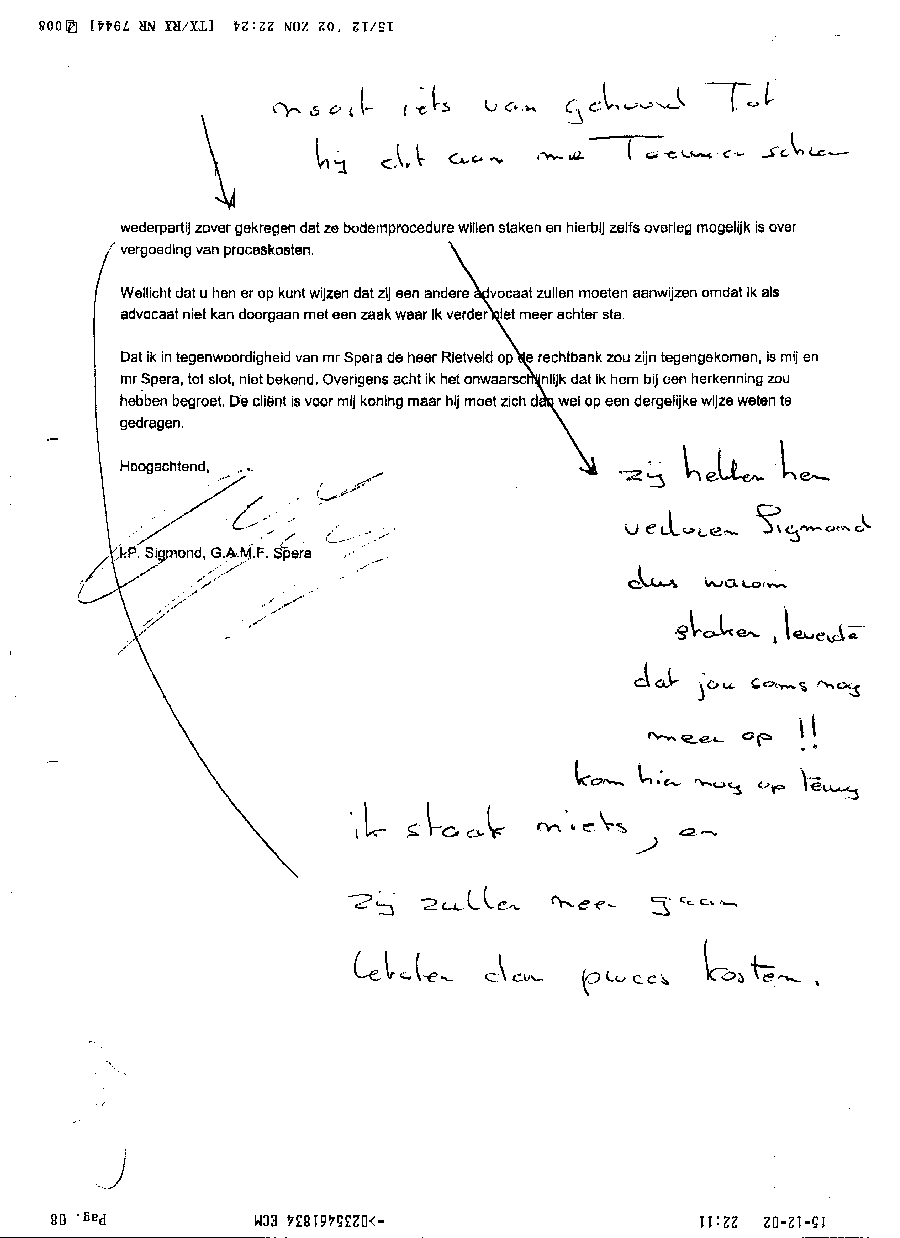 15/12 '02 ZON 22:24 [TX/RX NR 7944] 008
nooit iets van gehoord Tot
hij dit aan me Toeunen schreen
wederpartij zover gekregen dat ze bodemprocedure willen staken en hierbij zelfs overleg mogelijk is over
vergoeding van proceskosten.
Wellicht dat u hen er op kunt wijzen dat zij een andere advocaat zullen moeten aanwijzen omdat ik als
advocaat niet kan doorgaan met een zaak waar ik verder niet meer achter sta.
Dat ik in tegenwoordigheid van mr Spera de heer Rietveld op de rechtbank zou zijn tegengekomen, is mij en
mr Spera, tot slot, niet bekend. Overigens acht ik het onwaarschijnlijk dat ik hem bij een herkenning zou
hebben begroet. De cliënt is voor mij koning maar hij moet zich dan wel op een dergelijke wijze weten te
gedragen.
Hoogachtend,
I.P. Sigmond, G.A.M.F. Spera
zij hebben hen
verloren Sigmond
dus warom
staken, leverde
dat jou soms nog
meer op !!
kom hier nog op terug
ik staak niets, en
zij zullen meer gaan
betalen dan proces kosten.
15-12-02 22:11 ->0235461834 ECM Pag. 08